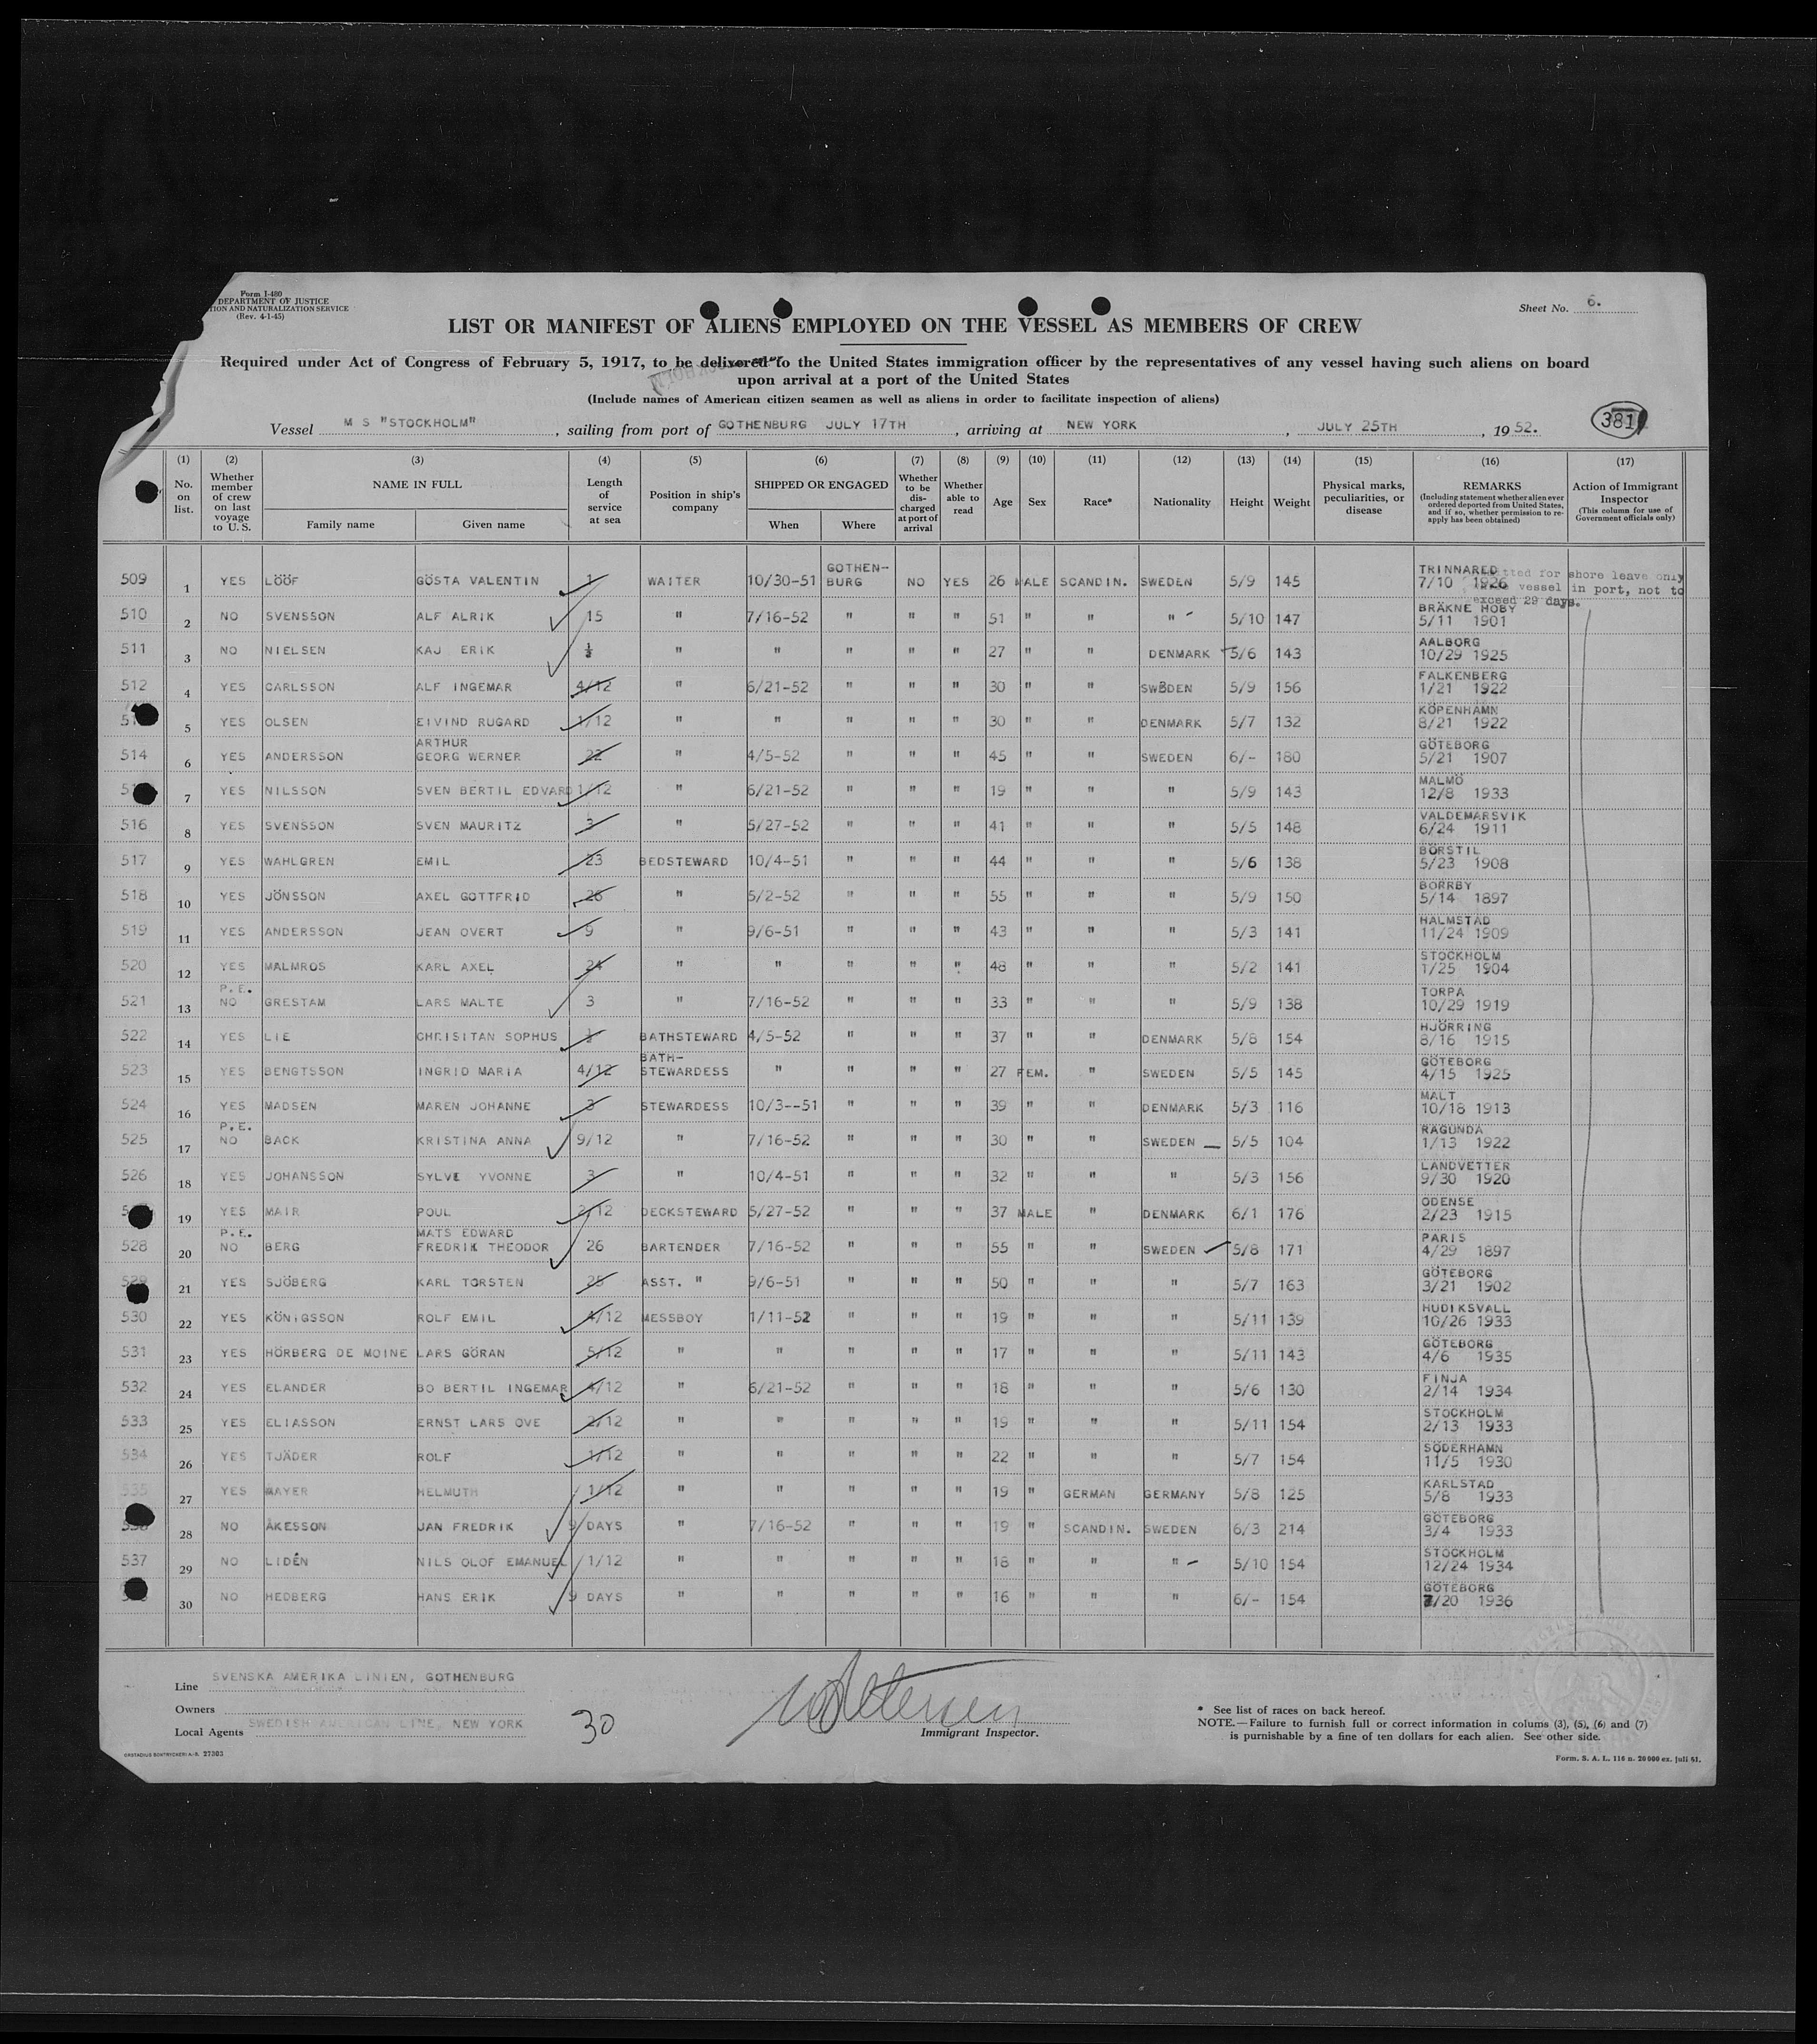 Form I-480
DEPARTMENT OF JUSTICE
TION AND NATURALIZATION SERVICE
(Rev. 4-1-45)
Sheet No. 6.
LIST OR MANIFEST OF ALIENS EMPLOYED ON THE VESSEL AS MEMBERS OF CREW
Required under Act of Congress of February 5, 1917, to be delivered to the United States immigration officer by the representatives of any vessel having such aliens on board
upon arrival at a port of the United States
(Include names of American citizen seamen as well as aliens in order to facilitate inspection of aliens)
Vessel M S "STOCKHOLM", sailing from port of GOTHENBURG JULY 17TH, arriving at NEW YORK, JULY 25TH, 1952.
381
(1) (2) (3) (4) (5) (6) (7) (8) (9) (10) (11) (12) (13) (14) (15) (16) (17)
No. on list.
Whether member of crew on last voyage to U. S.
NAME IN FULL
Family name Given name
Length of service at sea
Position in ship's company
SHIPPED OR ENGAGED
When Where
Whether to be discharged at port of arrival
Whether able to read
Age Sex Race* Nationality Height Weight
Physical marks, peculiarities, or disease
REMARKS
(Including statement whether alien ever ordered deported from United States, and if so, whether permission to re-apply has been obtained)
Action of Immigrant Inspector
(This column for use of Government officials only)
tted for shore leave only
vessel in port, not to
exceed 29 days.
509 1 YES LÖÖF GÖSTA VALENTIN 1 WAITER 10/30-51 GOTHENBURG NO YES 26 MALE SCANDIN. SWEDEN 5/9 145 TRINNARED 7/10 1926
510 2 NO SVENSSON ALF ALRIK 15 " 7/16-52 " " " 51 " " " 5/10 147 BRÄKNE HOBY 5/11 1901
511 3 NO NIELSEN KAJ ERIK " " " " " 27 " " DENMARK 5/6 143 AALBORG 10/29 1925
512 4 YES CARLSSON ALF INGEMAR 4/12 " 6/21-52 " " " 30 " " SWEDEN 5/9 156 FALKENBERG 1/21 1922
5 YES OLSEN EIVIND RUGARD 1/12 " " " " " 30 " " DENMARK 5/7 132 KÖPENHAMN 8/21 1922
514 6 YES ANDERSSON ARTHUR GEORG WERNER 22 " 4/5-52 " " " 45 " " SWEDEN 6/- 180 GÖTEBORG 5/21 1907
7 YES NILSSON SVEN BERTIL EDVARD 1/12 " 6/21-52 " " " 19 " " " 5/9 143 MALMÖ 12/8 1933
516 8 YES SVENSSON SVEN MAURITZ 3 " 5/27-52 " " " 41 " " " 5/5 148 VALDEMARSVIK 6/24 1911
517 9 YES WAHLGREN EMIL 23 BEDSTEWARD 10/4-51 " " " 44 " " " 5/6 138 BÖRSTIL 5/23 1908
518 10 YES JÖNSSON AXEL GOTTFRID 26 " 5/2-52 " " " 55 " " " 5/9 150 BORRBY 5/14 1897
519 11 YES ANDERSSON JEAN OVERT 9 " 9/6-51 " " " 43 " " " 5/3 141 HALMSTAD 11/24 1909
520 12 YES MALMROS KARL AXEL 24 " " " " " 48 " " " 5/2 141 STOCKHOLM 1/25 1904
521 13 P.E. NO GRESTAM LARS MALTE 3 " 7/16-52 " " " 33 " " " 5/9 138 TORPA 10/29 1919
522 14 YES LIE CHRISITAN SOPHUS BATHSTEWARD 4/5-52 " " " 37 " " DENMARK 5/8 154 HJÖRRING 8/16 1915
523 15 YES BENGTSSON INGRID MARIA 4/12 BATH-STEWARDESS " " " " 27 FEM. " SWEDEN 5/5 145 GÖTEBORG 4/15 1925
524 16 YES MADSEN MAREN JOHANNE 3 STEWARDESS 10/3--51 " " " 39 " " DENMARK 5/3 116 MALT 10/18 1913
525 17 P.E. NO BACK KRISTINA ANNA 9/12 " 7/16-52 " " " 30 " " SWEDEN 5/5 104 RAGUNDA 1/13 1922
526 18 YES JOHANSSON SYLVE YVONNE 3 " 10/4-51 " " " 32 " " " 5/3 156 LANDVETTER 9/30 1920
19 YES MAIR POUL 2/12 DECKSTEWARD 5/27-52 " " " 37 MALE " DENMARK 6/1 176 ODENSE 2/23 1915
528 20 P.E. NO BERG MATS EDWARD FREDRIK THEODOR 26 BARTENDER 7/16-52 " " " 55 " " SWEDEN 5/8 171 PARIS 4/29 1897
529 21 YES SJÖBERG KARL TORSTEN 25 ASST. " 9/6-51 " " " 50 " " " 5/7 163 GÖTEBORG 3/21 1902
530 22 YES KÖNIGSSON ROLF EMIL 4/12 MESSBOY 1/11-52 " " " 19 " " " 5/11 139 HUDIKSVALL 10/26 1933
531 23 YES HÖRBERG DE MOINE LARS GÖRAN 5/12 " " " " " 17 " " " 5/11 143 GÖTEBORG 4/6 1935
532 24 YES ELANDER BO BERTIL INGEMAR 4/12 " 6/21-52 " " " 18 " " " 5/6 130 FINJA 2/14 1934
533 25 YES ELIASSON ERNST LARS OVE 2/12 " " " " " 19 " " " 5/11 154 STOCKHOLM 2/13 1933
534 26 YES TJÄDER ROLF 1/12 " " " " " 22 " " " 5/7 154 SÖDERHAMN 11/5 1930
535 27 YES MAYER HELMUTH 1/12 " " " " " 19 " GERMAN GERMANY 5/8 125 KARLSTAD 5/8 1933
28 NO ÅKESSON JAN FREDRIK 9 DAYS " 7/16-52 " " " 19 " SCANDIN. SWEDEN 6/3 214 GÖTEBORG 3/4 1933
537 29 NO LIDÉN NILS OLOF EMANUEL 1/12 " " " " " 18 " " " 5/10 154 STOCKHOLM 12/24 1934
30 NO HEDBERG HANS ERIK 9 DAYS " " " " " 16 " " " 6/- 154 GÖTEBORG 7/20 1936
Line SVENSKA AMERIKA LINIEN, GOTHENBURG
Owners
Local Agents SWEDISH AMERICAN LINE, NEW YORK
30
Immigrant Inspector.
* See list of races on back hereof.
NOTE.—Failure to furnish full or correct information in colums (3), (5), (6) and (7)
is punishable by a fine of ten dollars for each alien. See other side.
27303
Form. S. A. L. 116 n. 20000 ex. juli 51.